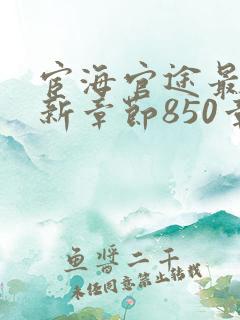 宦海官途最
新章节850章
鱼将二千
未经同意禁止转载